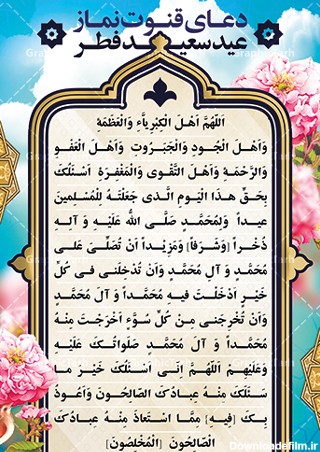 دعای قنوت نماز
عید سعید فطر
اَللّهُمَّ اَهْلَ الْكِبْرِيآءِ وَالْعَظَمَةِ
وَاَهْلَ الْجُودِ وَالْجَبَرُوتِ وَاَهْلَ الْعَفْوِ
وَالرَّحْمَةِ وَاَهْلَ التَّقْوى وَالْمَغْفِرَةِ اَسْئَلُكَ
بِحَقِّ هذَا الْيَومِ الَّذى جَعَلْتَهُ لِلْمُسْلِمينَ
عيداً وَلِمُحَمَّدٍ صَلَّى اللهُ عَلَيْهِ وَ آلِهِ
ذُخْراً [وَشَرَفاً] وَمَزِيْداً اَنْ تُصَلِّىَ عَلى
مُحَمَّدٍ وَ آلِ مُحَمَّدٍ وَاَنْ تُدْخِلَنى فى كُلِّ
خَيْرٍ اَدْخَلْتَ فيهِ مُحَمَّداً وَ آلَ مُحَمَّدٍ
وَاَنْ تُخْرِجَنى مِنْ كُلِّ سُوَّءٍ اَخْرَجْتَ مِنْهُ
مُحَمَّداً وَ آلَ مُحَمَّدٍ صَلَواتُكَ عَلَيْهِ
وَعَلَيْهِمْ اَللّهُمَّ اِنّى اَسْئَلُكَ خَيْرَ ما
سَئَلَكَ مِنْهُ عِبادُكَ الصّالِحُونَ وَاَعُوذُ
بِكَ [فيهِ] مِمَّا اسْتَعاذَ مِنْهُ عِبادُكَ
الْصّالِحُونَ [الْمُخْلِصُونَ]
Downloadefilm.ir